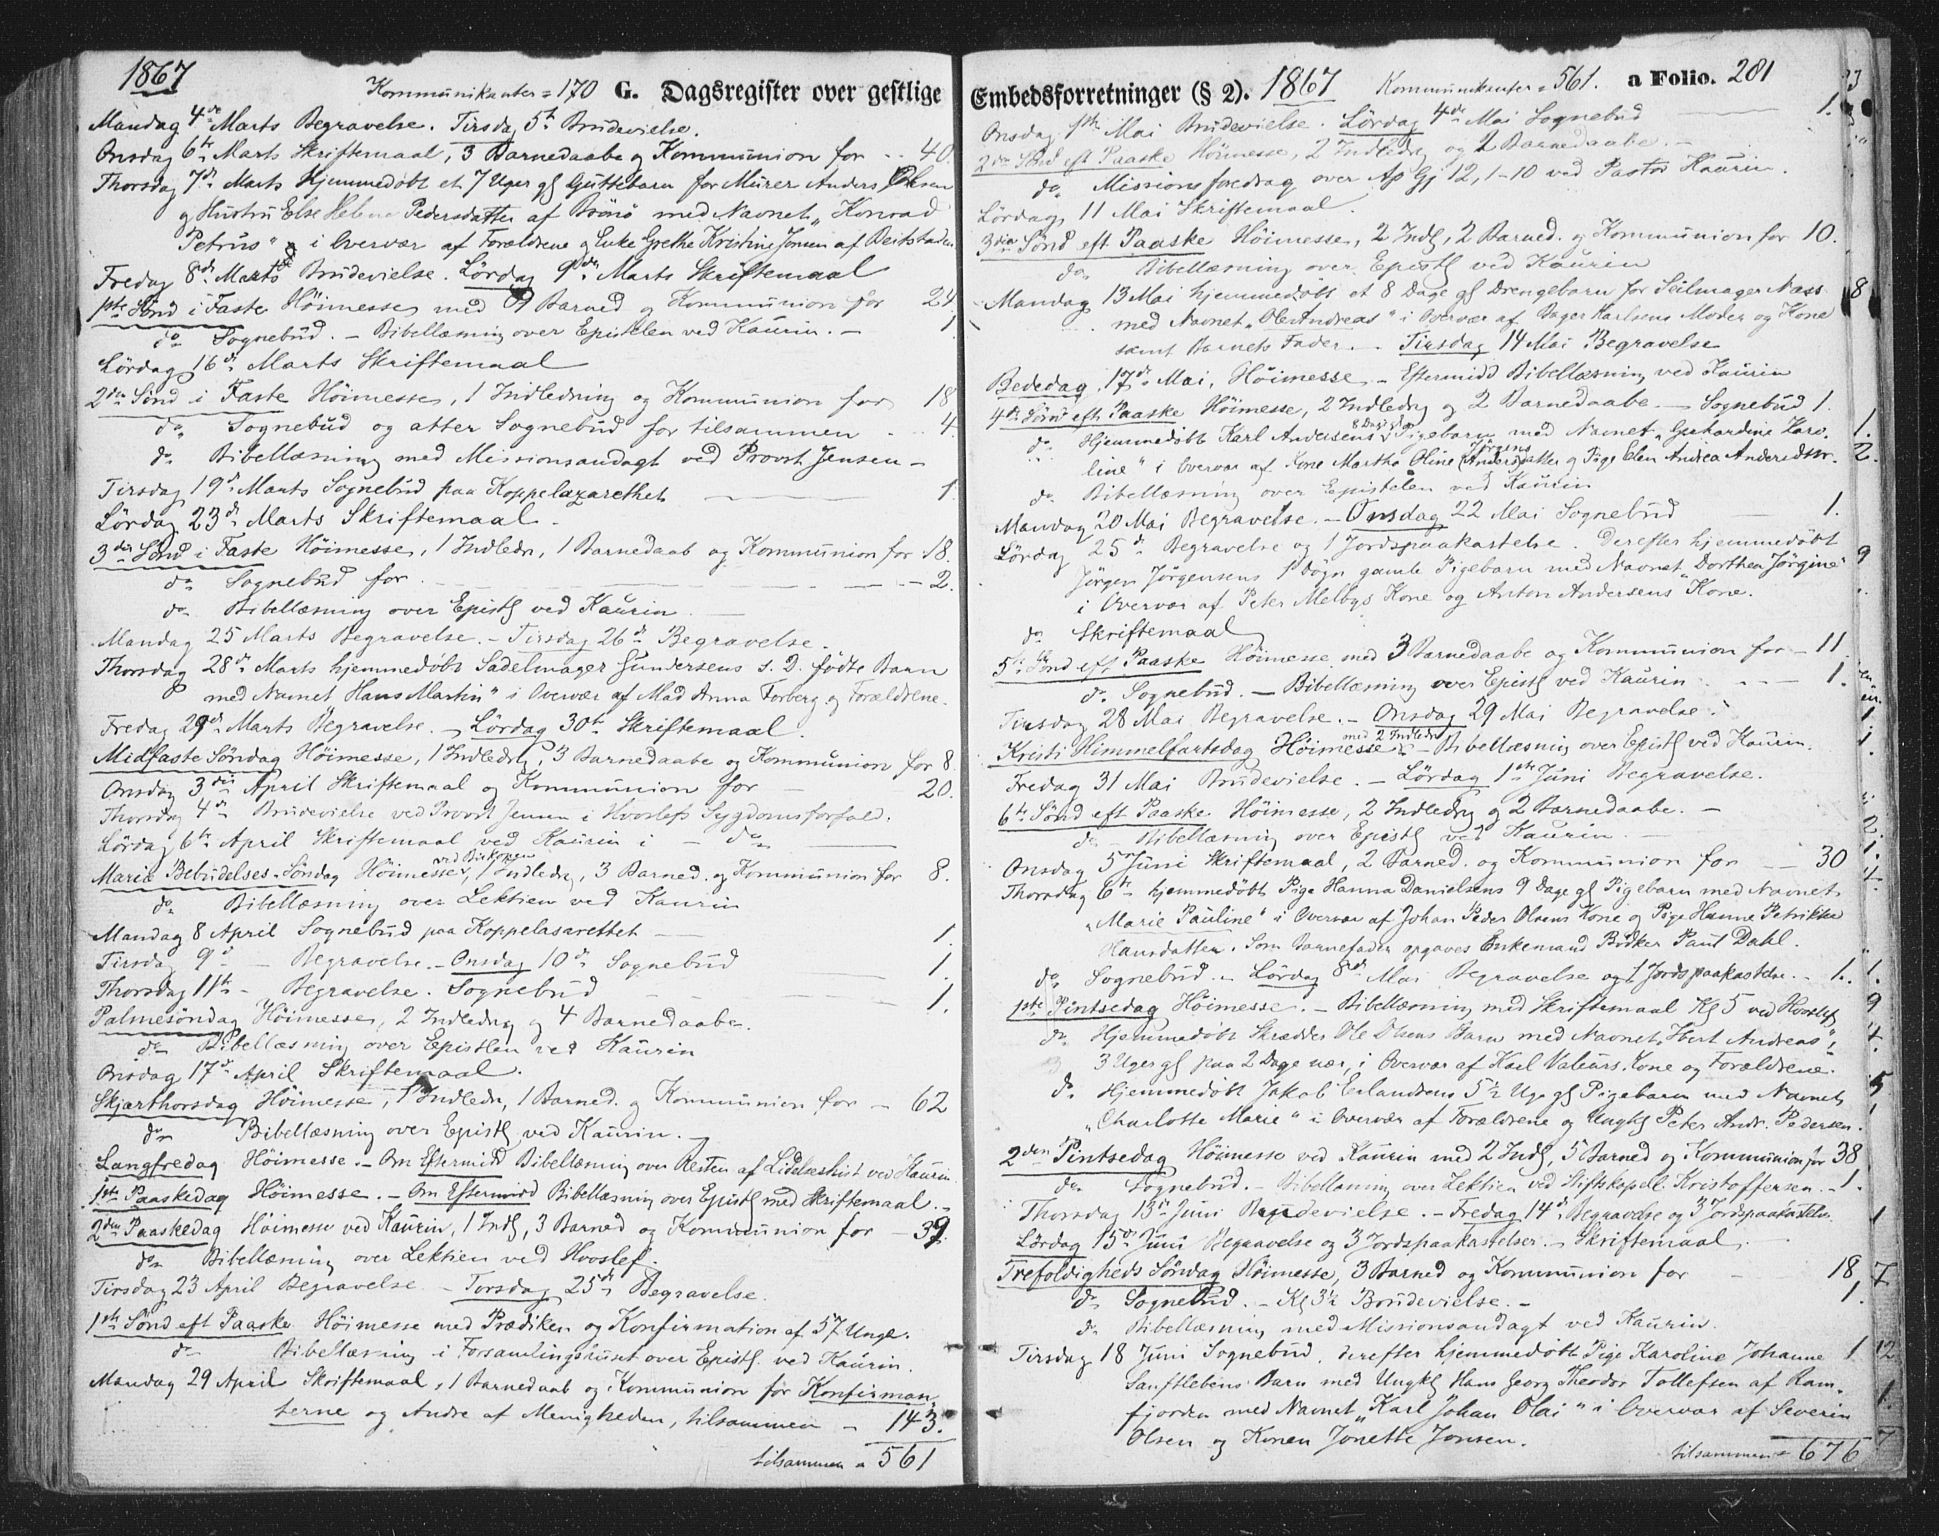 1867
Kommunikanter = 170 G. Dagsregister over gestlige
Mandag 4de Marts Begravelse. Tirsdag 5te Brudevielse.
Onsdag 6te Marts Skriftemaal, 3 Barnedaabe og Kommunion for - - 40.
Thorsdag 7de Marts Hjemmedøbt et 7 Uger gl Guttebarn for Murer Anders
og Hustru Else Helena Pedersdatter af med Navnet „Konrad
Petrus" i Overvær af Forældrene og Enke Grethe Kristine Jensen af
Fredag 8de Marts Brudevielse. Lördag 9de Marts Skriftemaal
1ste Sønd i Faste Höimesse med Barned og Kommunion for 24.
do Sognebud. - Bibellæsning over Epistelen ved Kaurin. - 1
Lördag 16de Marts Skriftemaal
2den Sønd i Faste Höimesse, 1 Indledning og Kommunion for 18
do Sognebud og atter Sognebud for tilsammen - - 4.
do Bibellæsning med Missionsandagt ved Provst Jensen -
Tirsdag 19de Marts Sognebud paa Koppelazarethet 1
Lördag 23de Marts Skriftemaal -
3die Sønd i Faste Höimesse, 1 Indledn, 1 Barnedaab og Kommunion for 18.
do Sognebud for - - 2.
do Bibellæsning over Epistl ved Kaurin
Mandag 25 Marts Begravelse. - Tirsdag 26de Begravelse.
Thorsdag 28de Marts hjemmedøbt Sadelmager Gundersens s. D. födte Barn
med Navnet Hans Martin" i Overvær af Mad Anna Forberg og Forældrene.
Fredag 29de Marts Begravelse. - Lördag 30te Skriftemaal.
Midfaste Söndag Höimesse, 1 Indledng, 3 Barnedaabe og Kommunion for 8.
Onsdag 3die April Skriftemaal og Kommunion for - 20.
Thorsdag 4de Brudevielse ved Provst Jensen i Hvoslefs Sygdomsforfald.
Lördag 6te April Skriftemaal ved Kaurin i - do
Maria Bebudelses-Söndag Höimesse ved Biskopen, 1 Indledng, 3 Barned. og Kommunion for 8.
do Bibellæsning over Lektien ved Kaurin
Mandag 8 April Sognebud paa Koppelasarettet - 1.
Tirsdag 9de - Begravelse. - Onsdag 10de Sognebud 1.
Thorsdag 11te - Begravelse. Sognebud 1.
Palmesöndag Höimesse, 2 Indledng og 4 Barnedaabe.
do Bibellæsning over Epistlen ved Kaurin
Onsdag 17de April Skriftemaal.
Skjærthorsdag Höimesse, 1 Indledn, 1 Barned. og Kommunion for - 62
do Bibellæsning over Epistl ved Kaurin. -
Langfredag Höimesse. - Om Eftermidd Bibellæsning over Resten af Lidelseshist ved Kaurin
1ste Paaskedag Höimesse. - Om Eftermidd Bibellæsning over Epistl med Skriftemaal. -
2den Paaskedag Höimesse ved Kaurin, 1 Indl, 3 Barned og Kommunion for - 39.
do Bibellæsning over Lektien ved Hvoslef.
Tirsdag 23 April Begravelse - Torsdag 25de Begravelse.
1ste Sønd eft Paaske Höimesse med Prædiken og Konfirmation af 57 Unge.
do Bibellæsning i Forsamlingshuset over Epistl. ved Kaurin
Mandag 29 April Skriftemaal, 1 Barnedaab og Kommunion for Konfirman
terne og Andre af Menigheden, tilsammen - 143.
tilsammen = 561
Embedsforretninger (§ 2). 1867 Kommunikanter = 561. a Folio. 281
Onsdag 1ste Mai Brudevielse. Lördag 4de Mai Sognebud 1.
2den Sønd eft Paaske Höimesse, 2 Indledng og 2 Barnedaabe. -
do Missionsforedrag over Ap Gj 12, 1-10 ved Pastor Kaurin.
Lördag 11 Mai Skriftemaal.
3die Sønd eft Paaske Höimesse, 2 Indl, 2 Barned. og Kommunion for 10.
do Bibellæsning over Epistl ved Kaurin
Mandag 13 Mai hjemmedøbt et 8 Dage gl Drengebarn for Seilmager Næss
med Navnet „Ole Andreas" i Overvær af Bager Karlsens Moder og Kone
samt Barnets Fader. - Tirsdag 14 Mai Begravelse
Bededag 17de Mai, Höimesse - Eftermidd Bibellæsning ved Kaurin
4de Sønd eft Paaske Höimesse, 2 Indledng og 2 Barnedaabe - Sognebud 1.
do Hjemmedøbt Karl Andersens 8 Dage gl Pigebarn med Navnet „Gerhardine Karo-
line" i Overvær af Kone Martha Oline Jörgens og Pige Elen Andrea Andersdtr.
do Bibellæsning over Epistelen ved Kaurin
Mandag 20 Mai Begravelse. - Onsdag 22 Mai Sognebud 1.
Lördag 25de Begravelse og 1 Jordspaakastelse. Derefter hjemmedøbt
Jörgen Jörgensens 1 Dögn gamle Pigebarn med Navnet „Dorthea Jörgine"
i Overvær af Peter Melbys Kone og Anton Andersens Kone.
do Skriftemaal
5te Sønd eft Paaske Höimesse med 3 Barnedaabe og Kommunion for - 11
do Sognebud. - Bibellæsning over Epistl ved Kaurin - 1.
Tirsdag 28 Mai Begravelse. - Onsdag 29 Mai Begravelse.
Kristi Himmelfartsdag Höimesse med 2 Indledn - Bibellæsning over Epistl ved Kaurin.
Fredag 31 Mai Brudevielse. - Lördag 1ste Juni Begravelse.
6te Sønd eft Paaske Höimesse, 2 Indledng og 2 Barnedaabe. -
do - Bibellæsning over Epistl ved Kaurin -
Onsdag 5 Juni Skriftemaal, 2 Barned. og Kommunion for - 30
Thorsdag 6te hjemmedøbt Pige Hanna Danielsens 9 Dage gl Pigebarn med Navnet
„Marie Pauline" i Overvær af Johan Peder Olsens Kone og Pige Hanne Petrikke
Hansdatter. Som Barnefader opgaves Enkemand Bödker Paul Dahl.
do Sognebud. - Lördag 8de Mai Begravelse og 1 Jordspaakastelse. - 1.
1ste Pintsedag Höimesse. - Bibellæsning med Skriftemaal Kl 5 ved Hvoslef
do Hjemmedøbt Skrædder Ole Barn med Navnet Andreas",
3 Uger gl paa 2 Dage nær, i Overvær af Karl Valeurs Kone og Forældrene.
do Hjemmedøbt Jakob Erlandsens 5½ Uge gl Pigebarn med Navnet
„Charlotte Marie" i Overvær af Forældrene og Ungkl Peter Andr. Pedersen.
2den Pintsedag Höimesse ved Kaurin med 2 Indl, 5 Barned og Kommunion for 38
do Sognebud. - Bibellæsning over Lektien ved Stiftskapell. Kristoffersen. - 1.
Thorsdag 13de Juni Brudevielse. - Fredag 14de Begravelse og 3 Jordspaakastelser
Lördag 15de Juni Begravelse og 3 Jordspaakastelser. - Skriftemaal.
Trefoldigheds Söndag Höimesse, 3 Barned og Kommunion for - 18,
do Sognebud. - Kl 3½ Brudevielse. - 1.
do Bibellæsning med Missionsandagt ved Kaurin.
Tirsdag 18 Juni Sognebud, derefter hjemmedøbt Pige Karoline Johanne 1
Sanftlebens Barn med Ungkl Hans Georg Theodor Tollefsen af Ram-
fjorden med Navnet „Karl Johan Olai" i Overvær af Severin
Olsen og Konen Jonette Jonsen.
tilsammen = 676